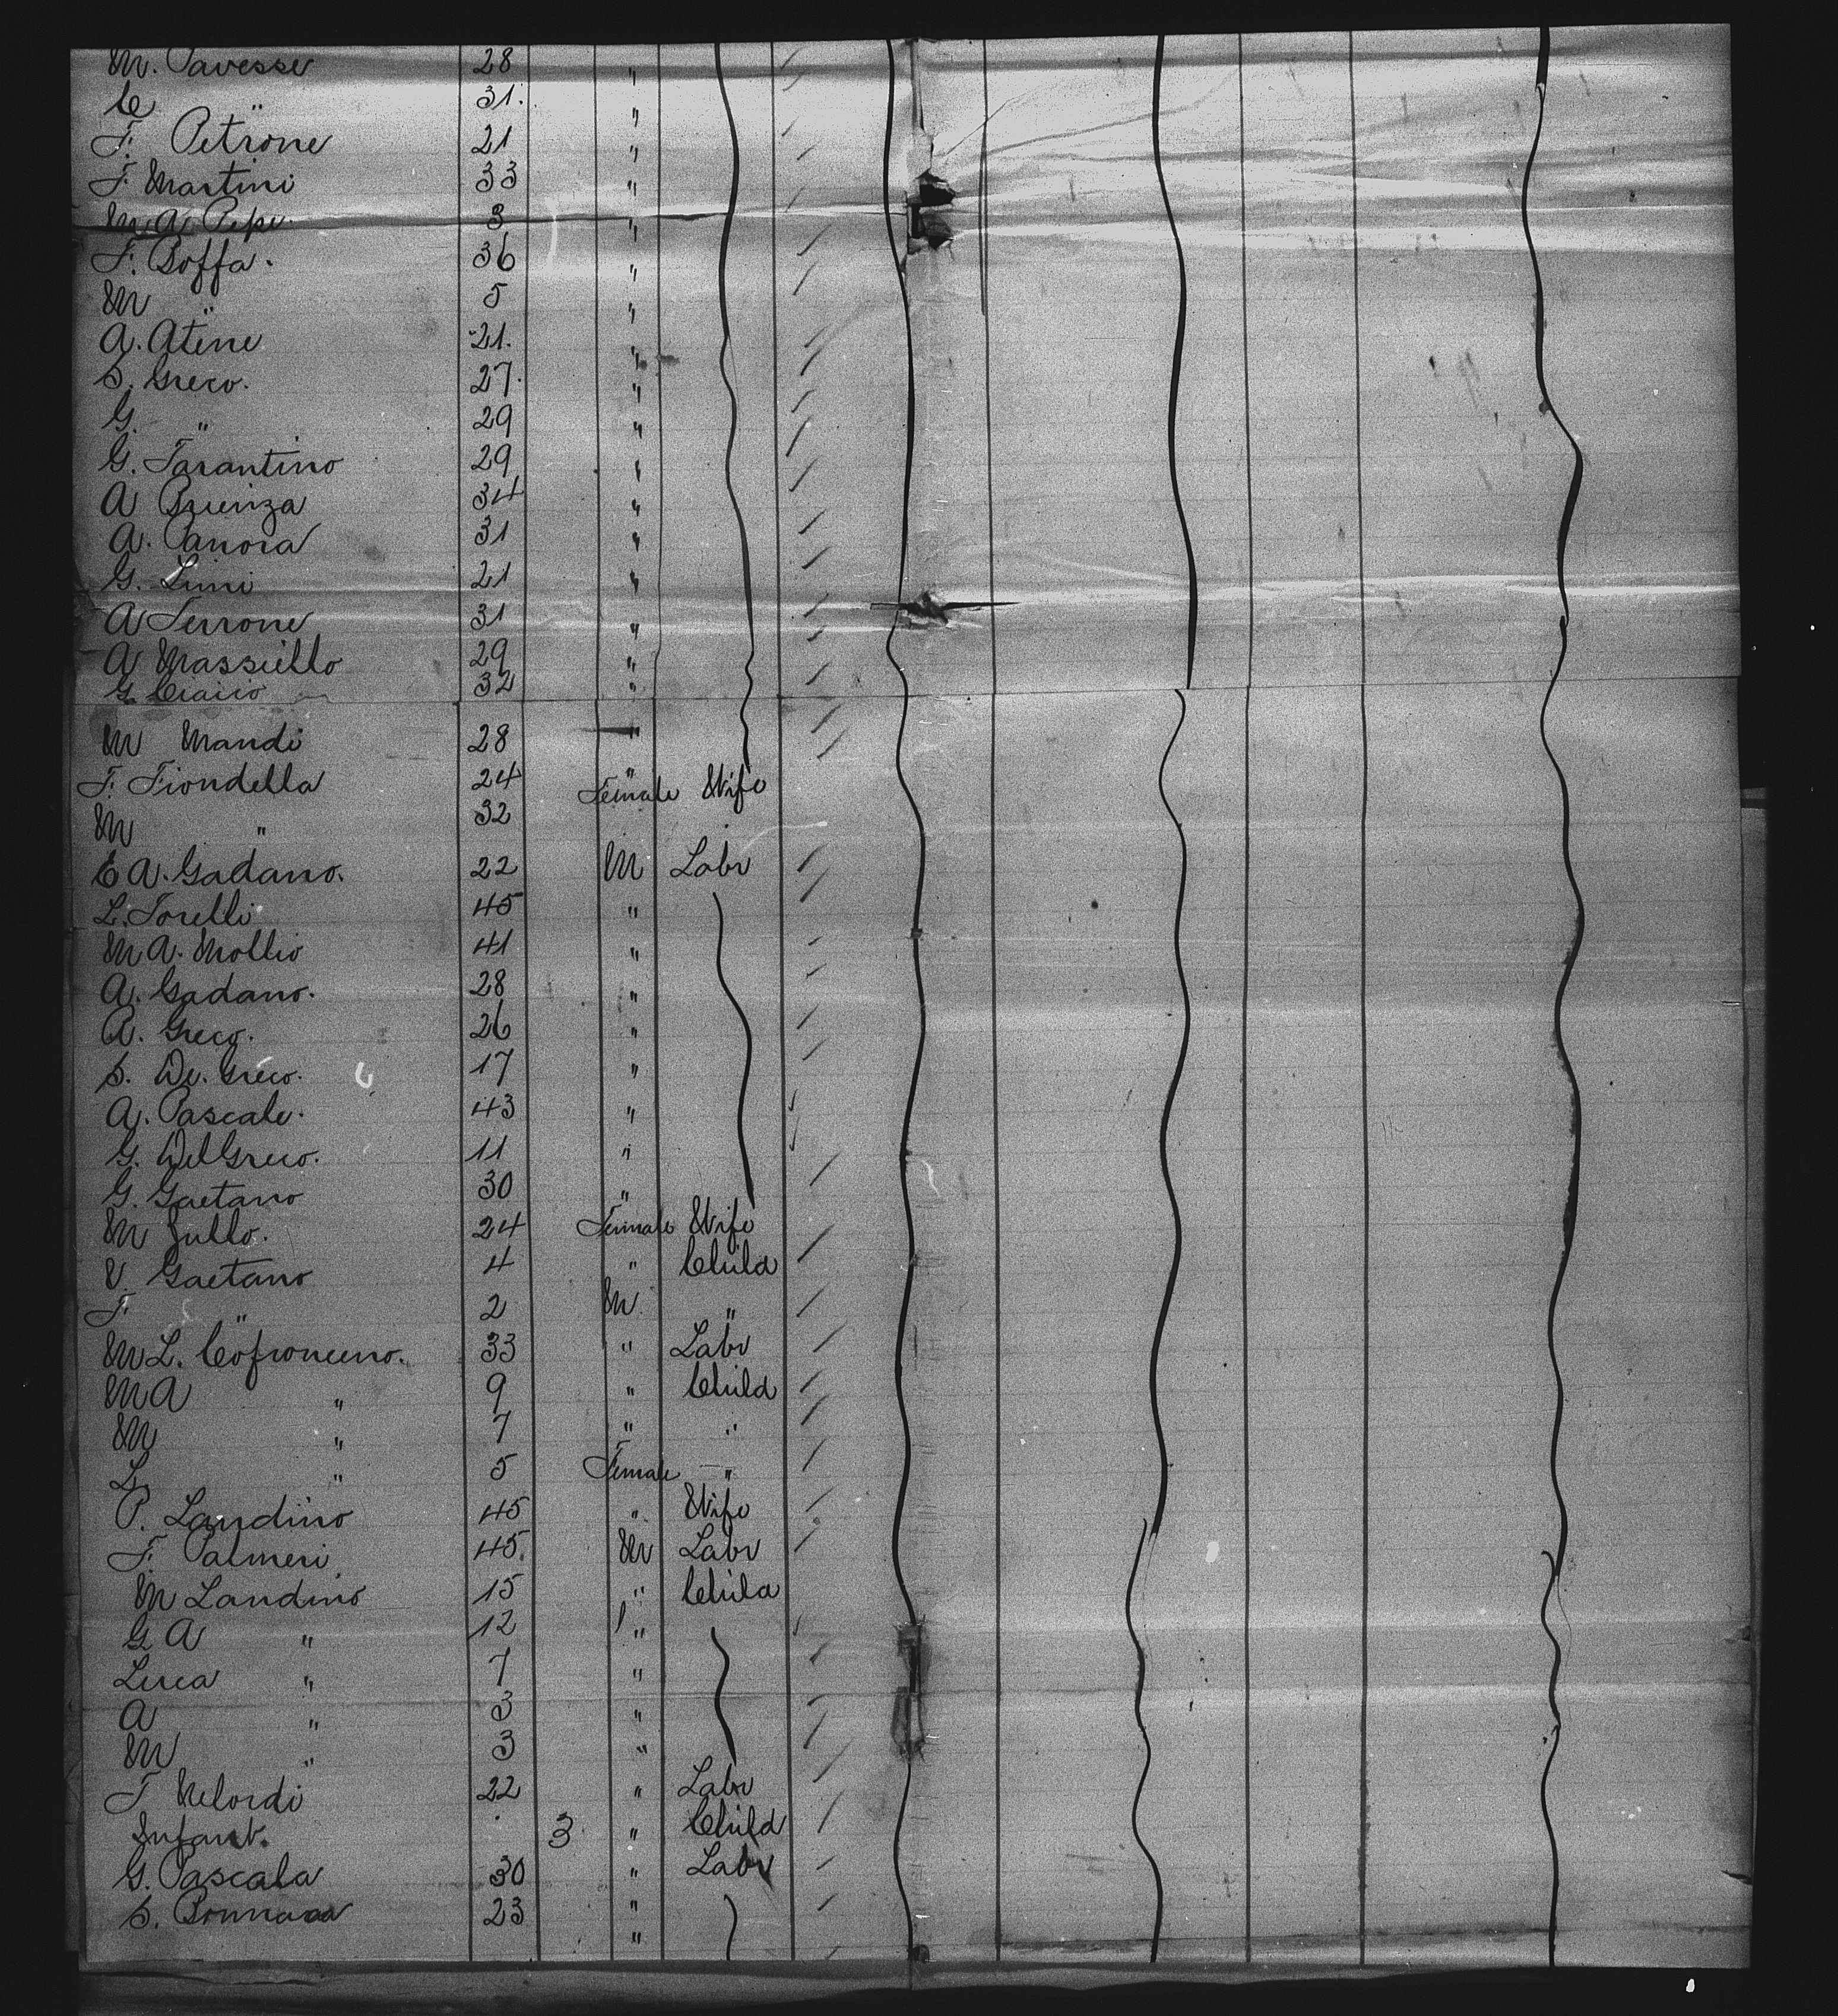 M. Pavesse 28 "
C " 31. "
F. Petrone 21 "
F. Martini 33 "
M A Pepe 3 "
F. Boffa. 36 "
M " 5 "
A. Atene 21. "
S. Greco. 27. "
G. " 29 "
G. Tarantino 29 "
A Brienza 34 "
A. Panora 31 "
G. Limi 21 "
A Terrone 31 "
A Massiello 29 "
G. 32 "
M Mandi 28 "
F. Fiondella 24 "
M " 32 Female Wife
E A. Gadano. 22 M Labr
L. Torelli 45 "
M A. Mollio 41 "
A. Gadano. 28 "
A. Greco. 26 "
S. De. Greco. 17 "
A. Pascale. 43 "
G. Del Greco. 11 "
G. Gaetano 30 "
M Jullo. 24 Female Wife
V. Gaetano 4 " Child
F. " 2 M "
M L. Cofronceno. 33 " Labr
M A " 9 " Child
M " 7 " "
L. " 5 Female "
P. Landino 45 " Wife
F. Palmeri 45. M Labr
M Landino 15 " Child
G A " 12 "
Luca " 7 "
A " 3 "
M " 3 "
F Melordi 22 " Labr
Infant. 3 " Child
G. Pascala 30 " Labr
S. 23 "
"